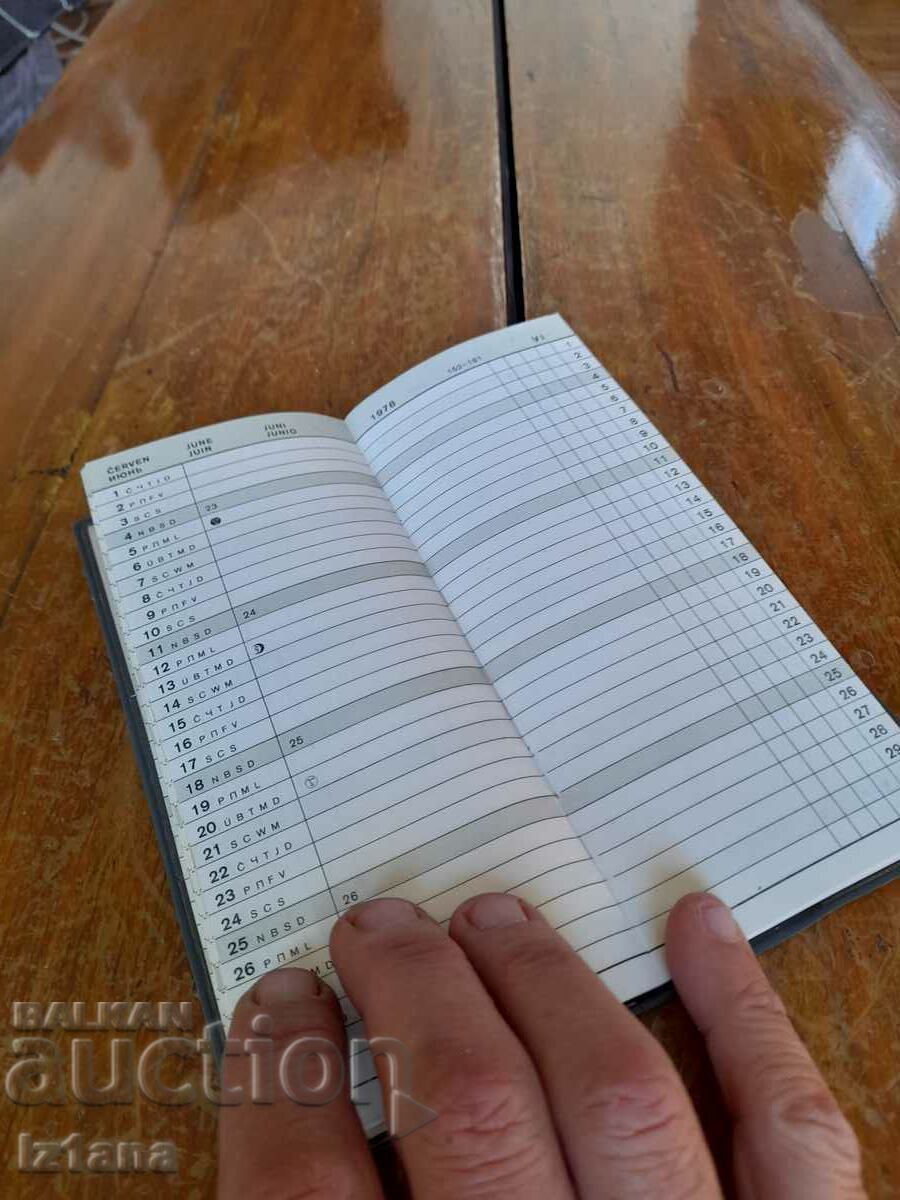 ČERVEN JUNE JUNI
ИЮНЬ JUIN JUNIO
1978
1 ČЧTJD
2 PПFV
3 SCS
4 NBSD 23
5 PПML
6 ÚBTMD
7 SCWM
8 ČЧTJD
9 PПFV
10 SCS
11 NBSD 24
12 PПML
13 ÚBTMD
14 SCWM
15 ČЧTJD
16 PПFV
17 SCS
18 NBSD 25
19 PПML
20 ÚBTMD
21 SCWM
22 ČЧTJD
23 PПFV
24 SCS
25 NBSD 26
26 PПML
MD
1
2
3
4
5
6
7
8
9
10
11
12
13
14
15
16
17
18
19
20
21
22
23
24
25
26
27
28
29
BALKAN
auction
Iztana